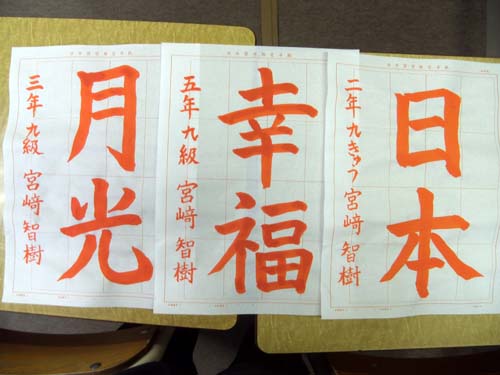 日本
二年 九きゅう 宮﨑 智樹
幸福
五年 九級 宮﨑 智樹
月光
三年 九級 宮﨑 智樹